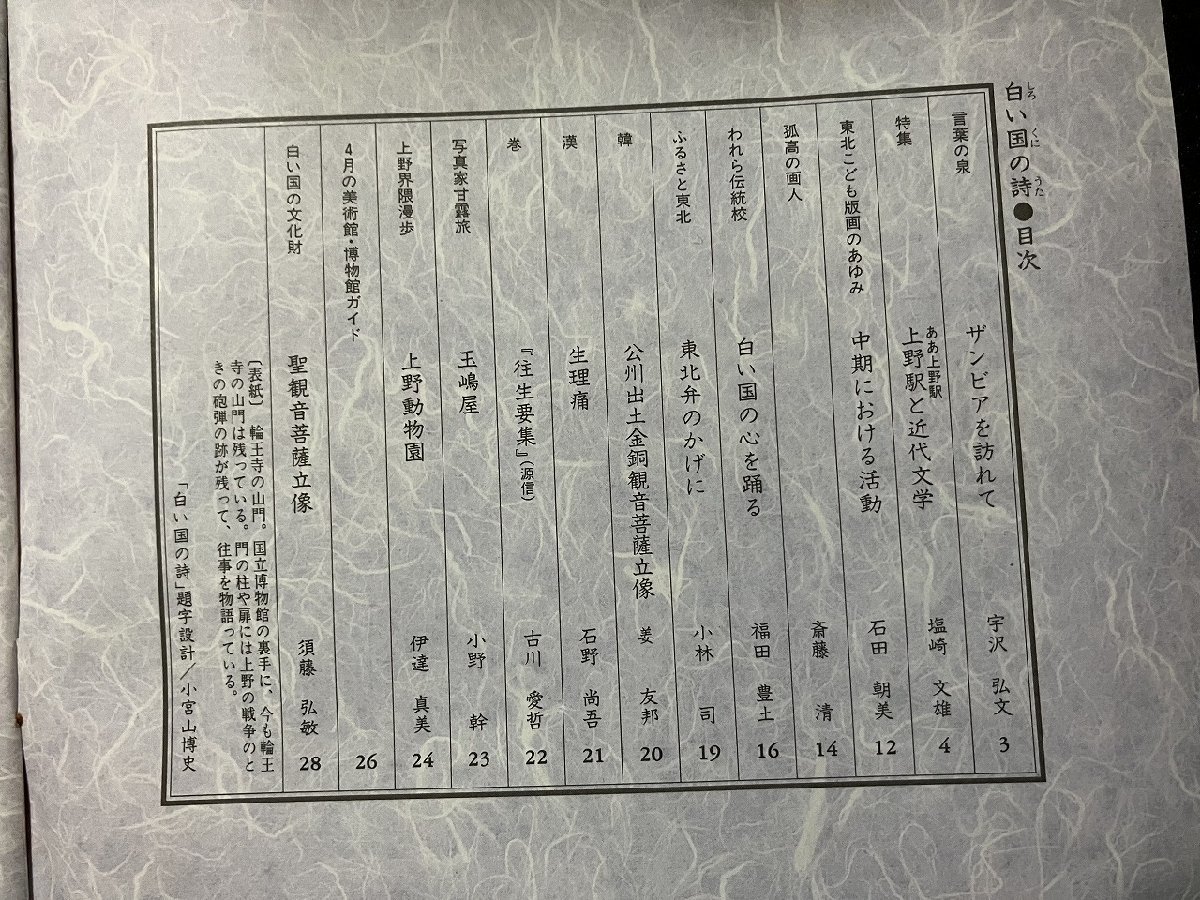 白い国の詩●目次
しろ くに うた
言葉の泉 ザンビアを訪れて 宇沢 弘文 3
特集 上野駅と近代文学 塩崎 文雄 4
ああ上野駅
東北こども版画のあゆみ 中期における活動 石田 朝美 12
孤高の画人 斎藤 清 14
われら伝統校 白い国の心を踊る 福田 豊土 16
ふるさと東北 東北弁のかげに 小林 司 19
韓 公州出土金銅観音菩薩立像 姜 友邦 20
漢 生理痛 石野 尚吾 21
巻 『往生要集』(源信) 古川 愛哲 22
写真家甘露旅 玉嶋屋 小野 幹 23
上野界隈漫歩 上野動物園 伊達 真美 24
4月の美術館・博物館ガイド 26
白い国の文化財 聖観音菩薩立像 須藤 弘敏 28
〔表紙〕 輪王寺の山門。国立博物館の裏手に、今も輪王
寺の山門は残っている。門の柱や扉には上野の戦争のと
きの砲弾の跡が残って、往事を物語っている。
「白い国の詩」題字設計/小宮山博史